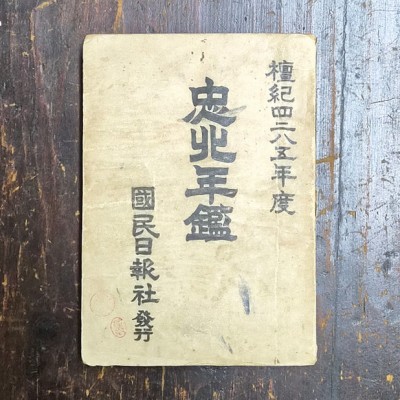 檀紀四二八五年度
忠北年鑑
國民日報社 發行